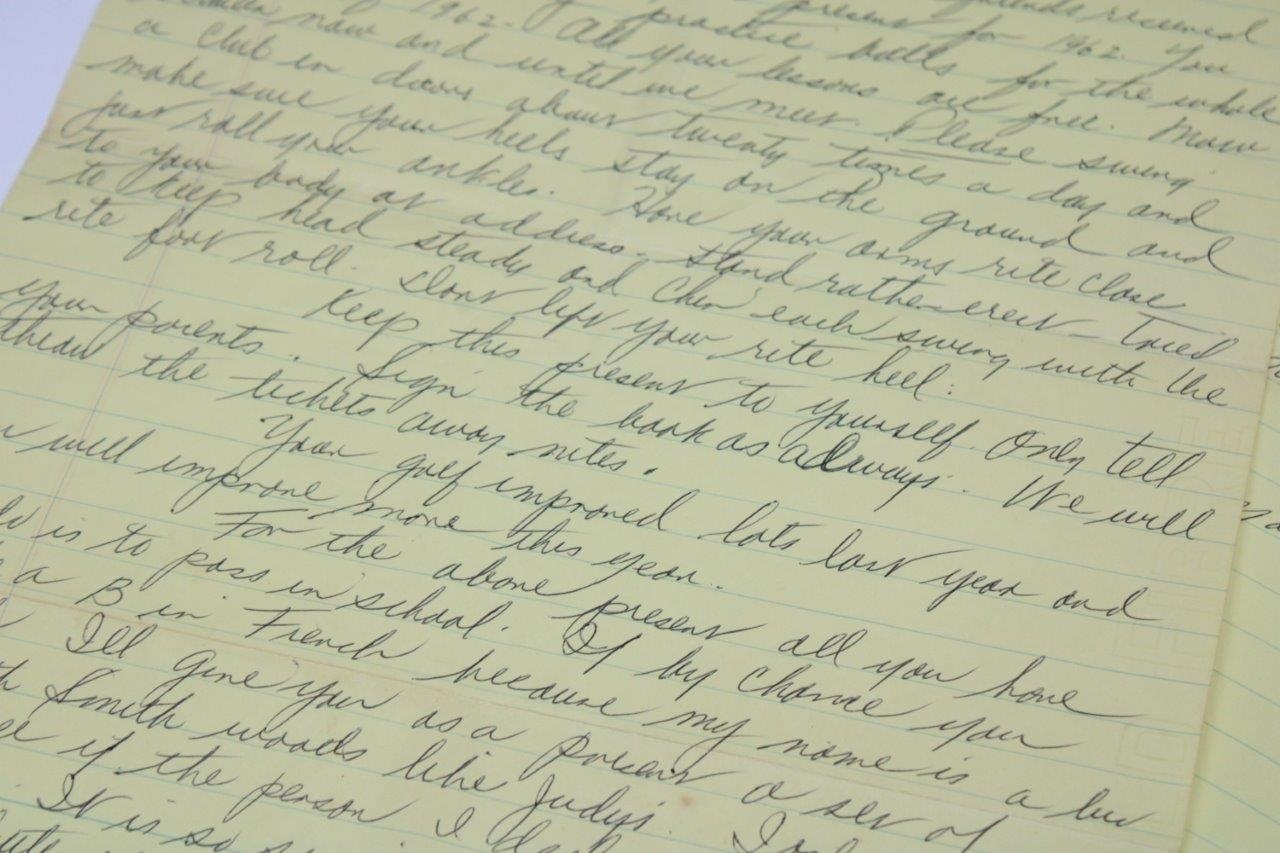 friends received
of 1962. present for 1962. You
between practice balls for the whole
now and until we meet. All your lessons are free. Maru
a club in doors about twenty times a day and Please swing
make sure your heels stay on the ground and
just roll your ankles. Have your arms rite close
to your body at address. Stand rather erect – Tried
to keep head steady and Chin each swing with the
rite foot roll. Dont lift your rite heel.
Keep this present to yourself. Only tell
your parents. Sign the book as always. We will
throw the tickets away nites.
Your golf improved lots last year and
will improve more this year.
For the above present all you have
is to pass in school. If by chance you
a B in French because my name is a luv
Ill give you as a present a set of
Smith woods like Judys.
if the person I
It is so